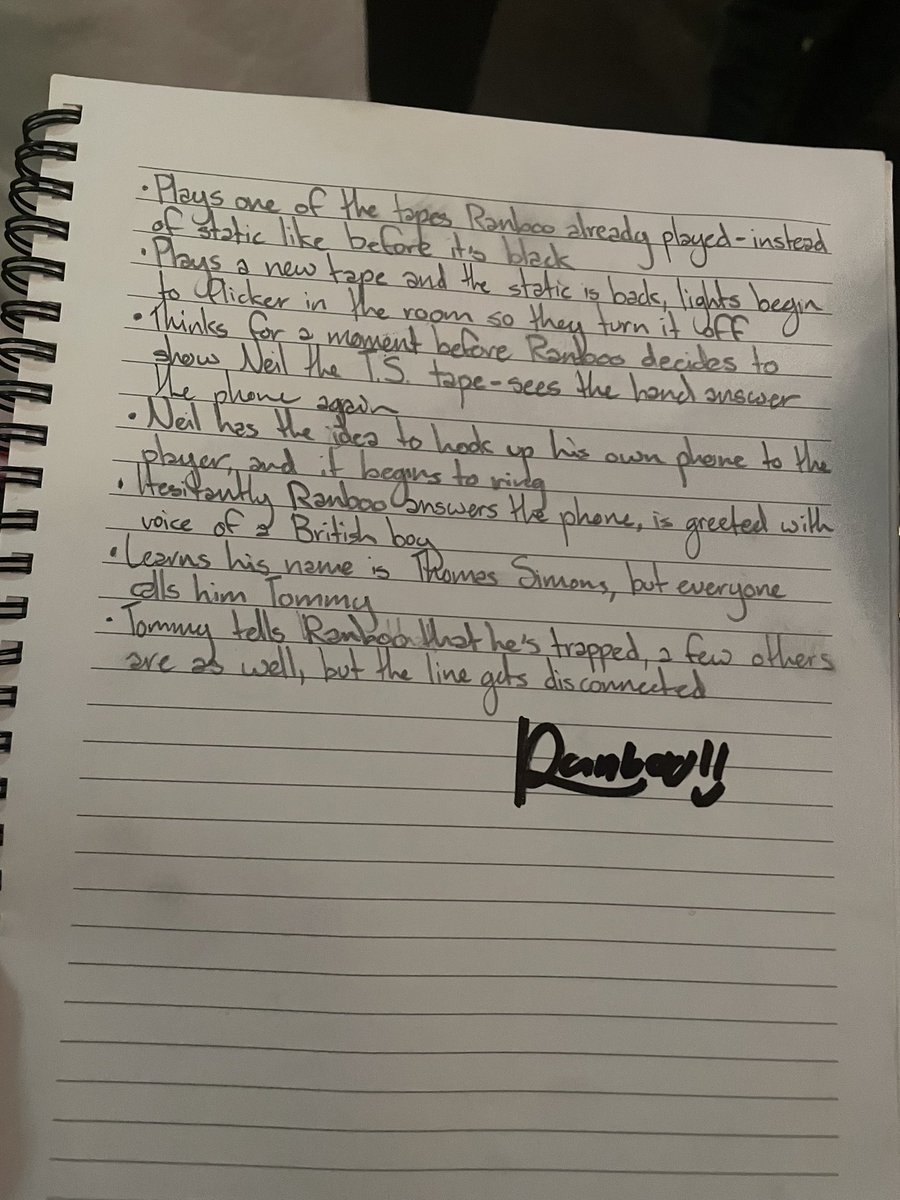 • Plays one of the tapes Ranboo already played - instead
of static like before it's black
• Plays a new tape and the static is back, lights begin
to flicker in the room so they turn it off
• Thinks for a moment before Ranboo decides to
show Neil the T.S. tape - sees the hand answer
the phone again
• Neil has the idea to hook up his own phone to the
player, and it begins to ring
• Hesitantly Ranboo answers the phone, is greeted with
voice of a British boy
• Learns his name is Thomas Simons, but everyone
calls him Tommy
• Tommy tells Ranboo that he's trapped, a few others
are as well, but the line gets disconnected
Ranboo!!